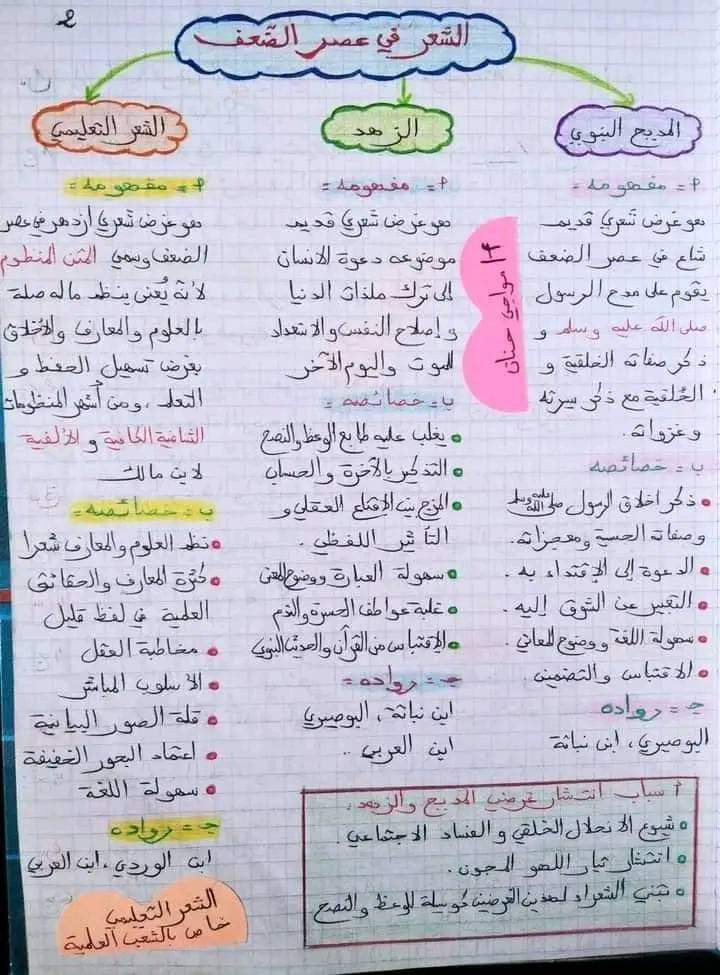 2
الشعر في عصر الضعف
المديح النبوي
أ- مفهومه =
هو غرض شعري قديم
شاع في عصر الضعف
يقوم على مدح الرسول
صلى الله عليه وسلم و
ذكر صفاته الخلقية و
الخُلقية مع ذكر سيرته
وغزواته.
ب- خصائصه
ذكر اخلاق الرسول صلى الله عليه وسلم
وصفاته الحسية ومعجزاته.
الدعوة إلى الإقتداء به.
التعبير عن الشوق إليه.
سهولة اللغة ووضوح المعاني.
الاقتباس والتضمين.
ج- رواده
البوصيري، ابن نباتة
الزهد
أ- مفهومه =
هو غرض شعري قديم
موضوعه دعوة الانسان
إلى ترك ملذات الدنيا
وإصلاح النفس والاستعداد
للموت واليوم الآخر
ب- خصائصه
يغلب عليه طابع الوعظ والنصح
التذكير بالآخرة والحساب
المزج بين الاقناع العقلي و
التأثير اللفظي.
سهولة العبارة ووضوح المعنى
غلبة عواطف الحسرة والندم
الإقتباس من القرآن والحديث النبوي
ج- رواده =
ابن نباتة، البوصيري
ابن العربي..
الشعر التعليمي
أ- مفهومه =
هو غرض شعري ازدهر في عصر
الضعف وسمي المتن المنظوم
لأنه يُعنى بنظم ماله صلة
بالعلوم والمعارف والأخلاق
بغرض تسهيل الحفظ و
التعلم، ومن أشهر المنظومات
الشافية الكافية والألفية
لابن مالك
ب- خصائصه =
نظم العلوم والمعارف شعرا
كثرة المعارف والحقائق
العلمية في لفظ قليل
مخاطبة العقل
الأسلوب المباشر
قلة الصور البيانية
اعتماد البحور الخفيفة
سهولة اللغة
ج- رواده
ابن الوردي، ابن العربي
الشعر التعليمي
خاص بالشعب العلمية
أسباب انتشار غرضي المديح والزهد:
شيوع الانحلال الخلقي و الفساد الاجتماعي.
انتشار تيار اللهو المجون.
تبني الشعراء لهذين الغرضين كوسيلة للوعظ والنصح